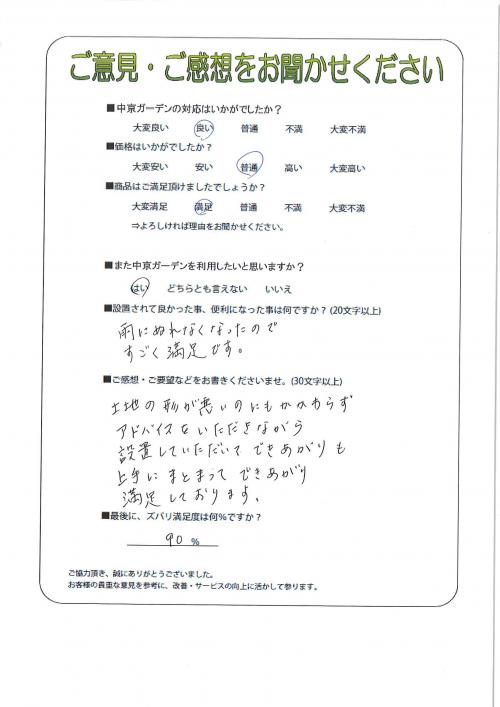 ご意見・ご感想をお聞かせください
■中京ガーデンの対応はいかがでしたか？
大変良い 良い 普通 不満 大変不満
■価格はいかがでしたか？
大変安い 安い 普通 高い 大変高い
■商品はご満足頂けましたでしょうか？
大変満足 満足 普通 不満 大変不満
⇒よろしければ理由をお聞かせください。
■また中京ガーデンを利用したいと思いますか？
はい どちらとも言えない いいえ
■設置されて良かった事、便利になった事は何ですか？(20文字以上)
雨にぬれなくなったので
すごく満足です。
■ご感想・ご要望などをお書きくださいませ。(30文字以上)
土地の形が悪いのにもかかわらず
アドバイスをいただきながら
設置していただいて できあがりも
上手にまとまって できあがり
満足しております。
■最後に、ズバリ満足度は何％ですか？
90 %
ご協力頂き、誠にありがとうございました。
お客様の貴重な意見を参考に、改善・サービスの向上に活かして参ります。